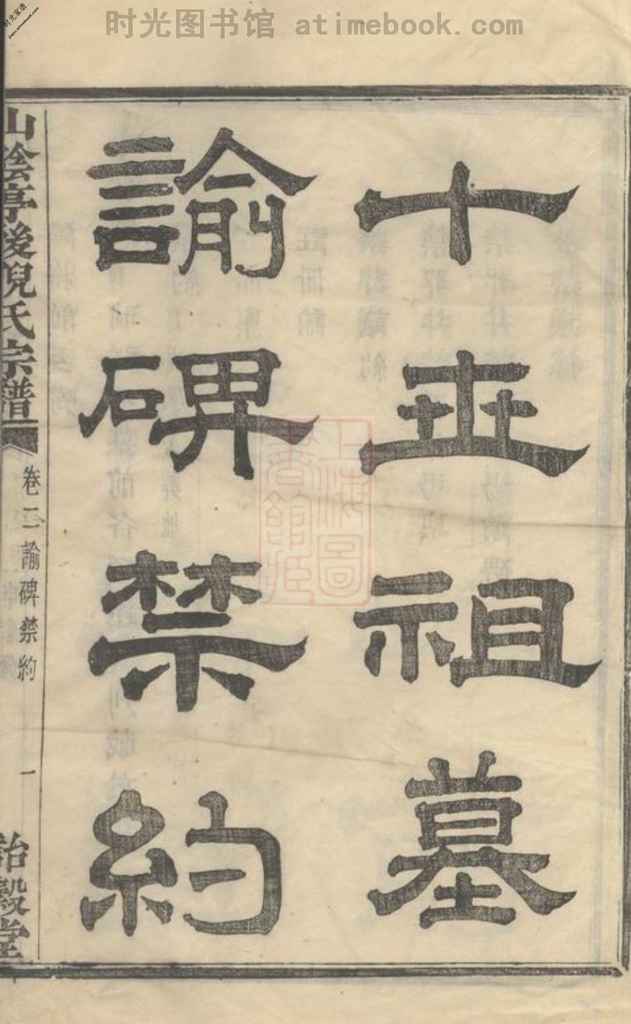 时光图书馆 atimebook.com
十世祖墓
諭碑禁約
山陰亭後倪氏宗譜
卷二諭碑禁約
一
詒穀堂